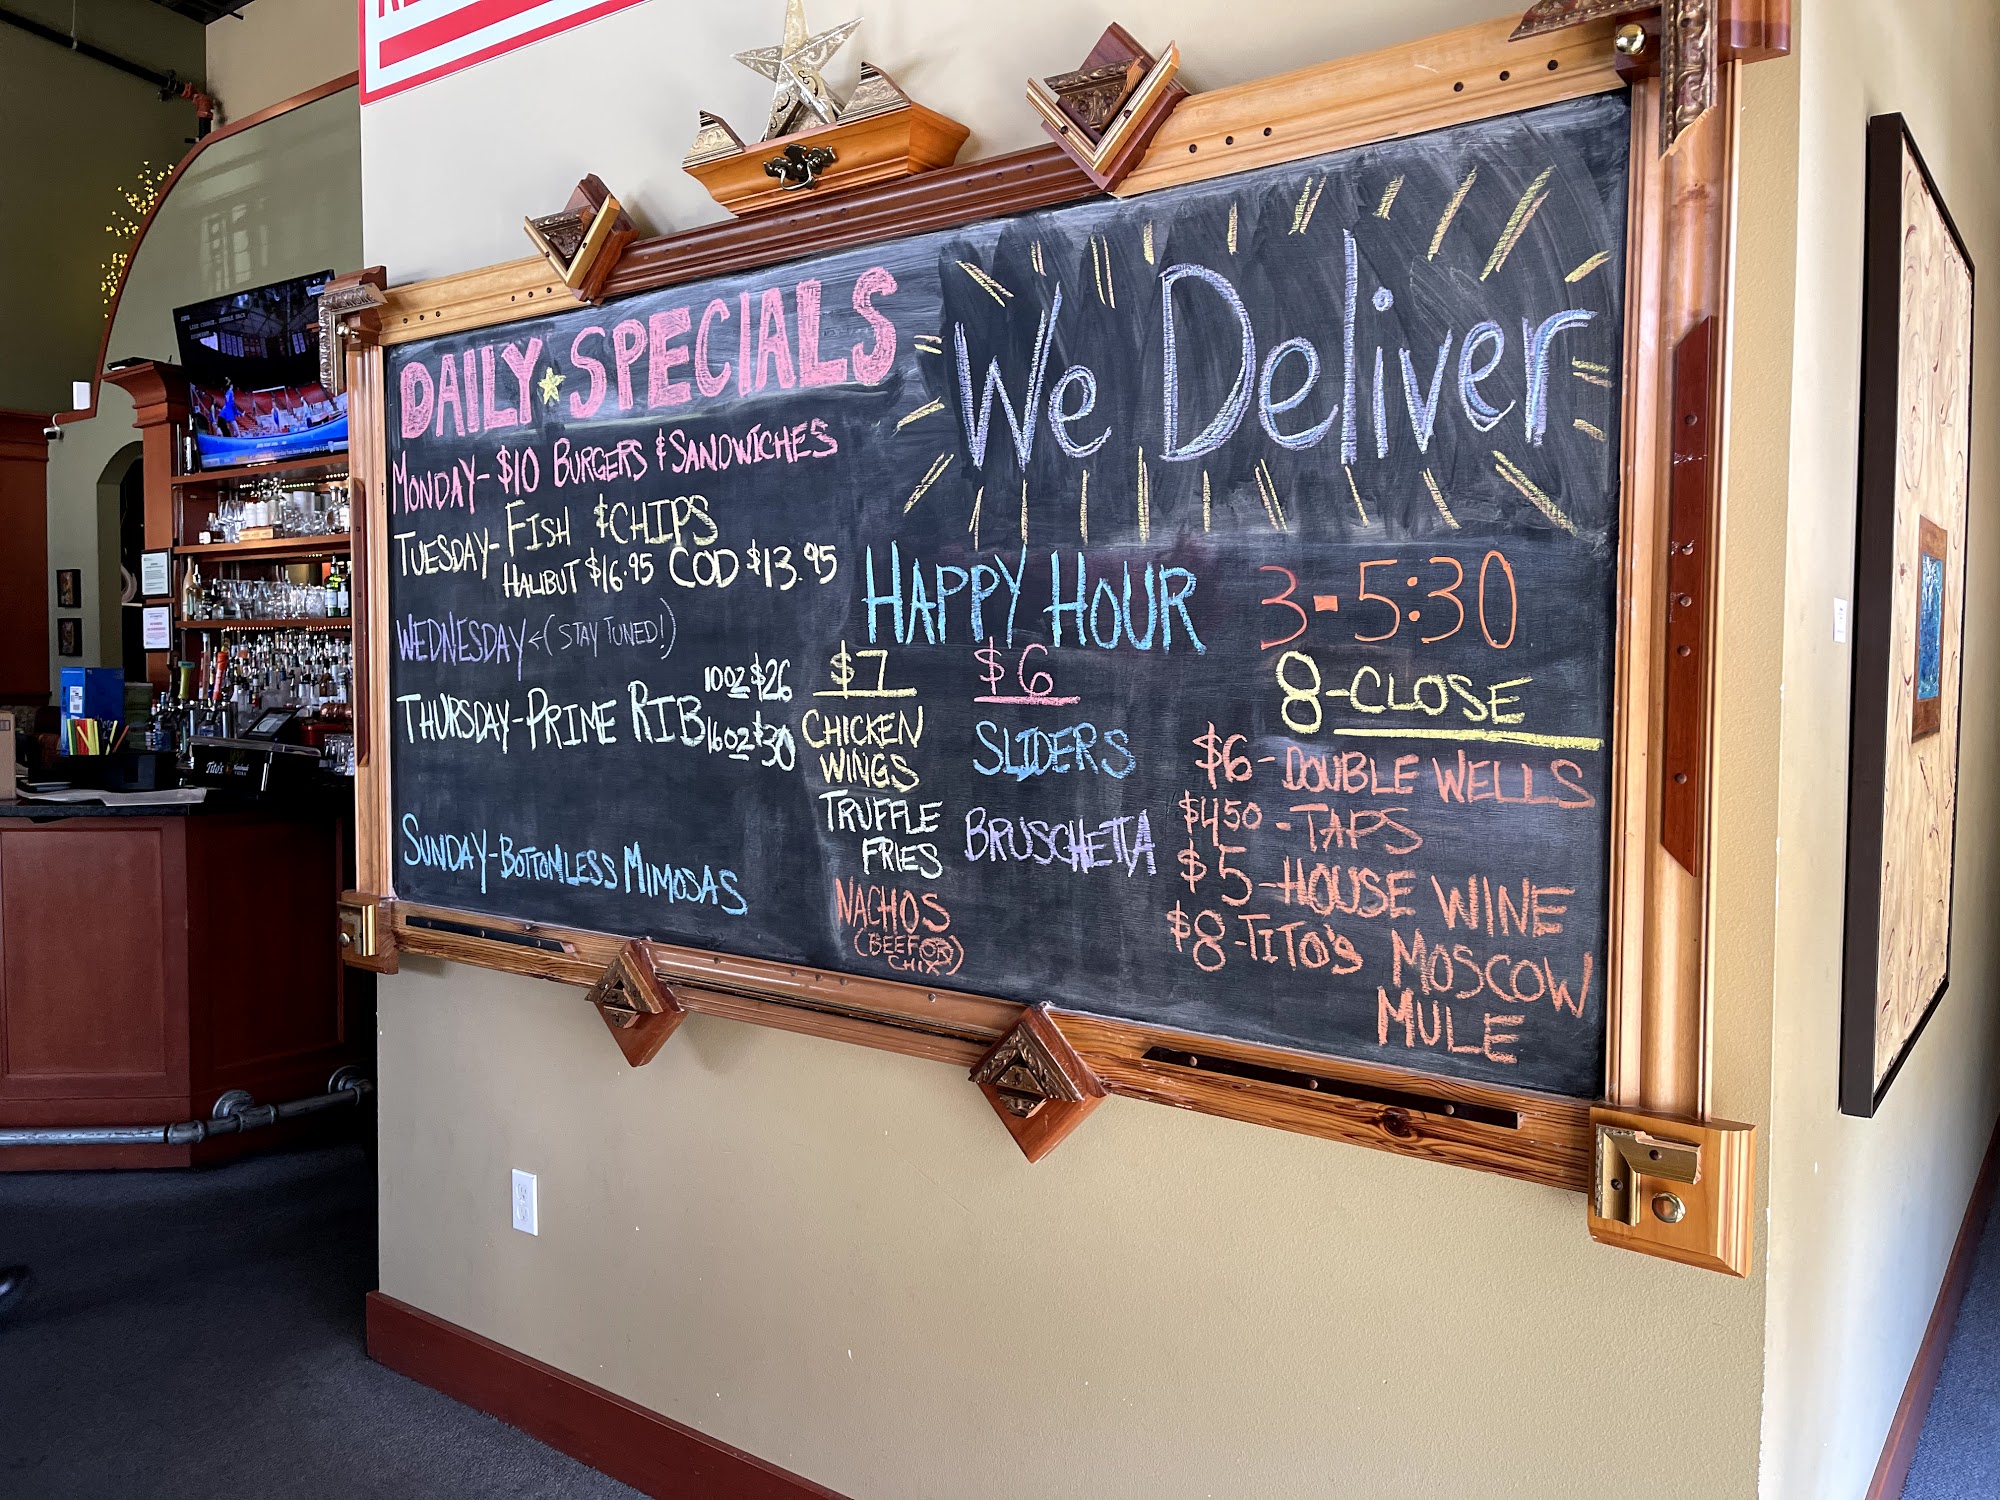 DAILY SPECIALS
MONDAY - $10 BURGERS & SANDWICHES
TUESDAY - FISH & CHIPS
HALIBUT $16.95 COD $13.95
WEDNESDAY ← (STAY TUNED!)
THURSDAY - PRIME RIB
10OZ $26
16OZ $30
SUNDAY - BOTTOMLESS MIMOSAS
We Deliver
HAPPY HOUR 3-5:30
8-CLOSE
$7
CHICKEN
WINGS
TRUFFLE
FRIES
NACHOS
(BEEF OR
CHIX)
$6
SLIDERS
BRUSCHETTA
$6 - DOUBLE WELLS
$4.50 - TAPS
$5 - HOUSE WINE
$8 - TITO'S MOSCOW
MULE
Tito's